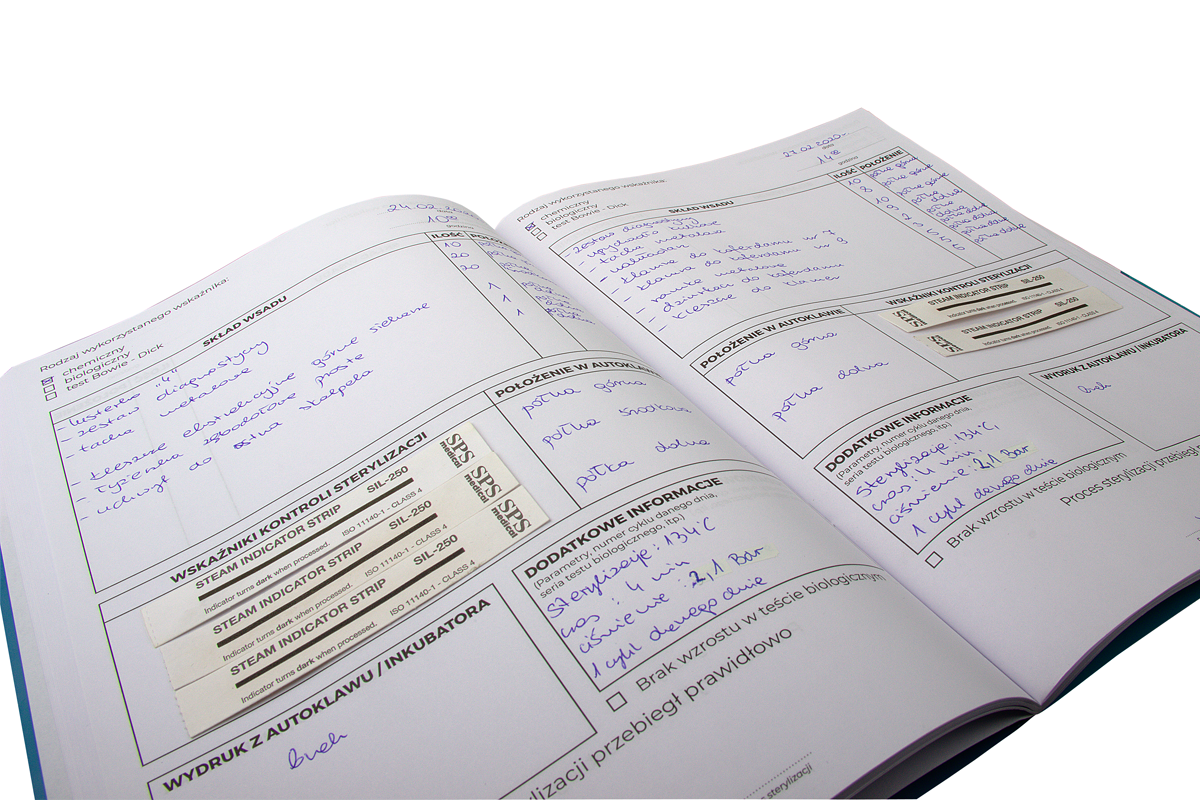 24.02.
10⁰⁰
Rodzaj wykorzystanego wskaźnika:
chemiczny
biologiczny
test Bowie - Dick
SKŁAD WSADU
ILOŚĆ
- lusterko "4"
- zestaw diagnostyczny
- tacka metalowe
- kleszcze ekstrakcyjne górne siekacze
- łyżeczka zębodołowe proste
- uchwyt do ostrza skalpela
10
20
20
1
1
1
WSKAŹNIKI KONTROLI STERYLIZACJI
STEAM INDICATOR STRIP SIL-250
Indicator turns dark when processed. ISO 11140-1 - CLASS 4
SPS medical
STEAM INDICATOR STRIP SIL-250
Indicator turns dark when processed. ISO 11140-1 - CLASS 4
SPS medical
STEAM INDICATOR STRIP SIL-250
Indicator turns dark when processed. ISO 11140-1 - CLASS 4
SPS medical
POŁOŻENIE W AUTOKLAWIE
półka górna
półka środkowa
półka dolna
DODATKOWE INFORMACJE
(Parametry, numer cyklu danego dnia,
seria testu biologicznego, itp.)
sterylizacje: 134°C
czas: 4 min
ciśnienie: 2,1 Bar
1 cykl danego dnia
WYDRUK Z AUTOKLAWU / INKUBATORA
brak
Brak wzrostu w teście biologicznym
lizacji przebiegł prawidłowo
sterylizacji
27.02.2020r.
data
14⁰⁰
godzina
Rodzaj wykorzystanego wskaźnika:
chemiczny
biologiczny
test Bowie - Dick
SKŁAD WSADU
ILOŚĆ
POŁOŻENIE
- zestaw diagnostyczny
- tacka metalowa
- nakładacz
- klamra do koferdamu nr 7
- klamra do koferdamu nr 9
- ramka metalowa
- dziurkacz do koferdamu
- kleszcze do klamer
10
8
10
2
2
3
5
5
6
półka górna
półka górna
półka górna
półka dolna
półka dolna
półka dolna
WSKAŹNIKI KONTROLI STERYLIZACJI
STEAM INDICATOR STRIP SIL-250
Indicator turns dark when processed. ISO 11140-1 - CLASS 4
SPS
STEAM INDICATOR STRIP SIL-250
Indicator turns dark when processed. ISO 11140-1 - CLASS 4
SPS
POŁOŻENIE W AUTOKLAWIE
półka górna
półka dolna
DODATKOWE INFORMACJE
(Parametry, numer cyklu danego dnia,
seria testu biologicznego, itp.)
sterylizacje: 134°C,
czas: 4 min,
ciśnienie: 2,1 Bar
1 cykl danego dnia
WYDRUK Z AUTOKLAWU / INKUBATORA
brak
Brak wzrostu w teście biologicznym
Proces sterylizacji przebiegł